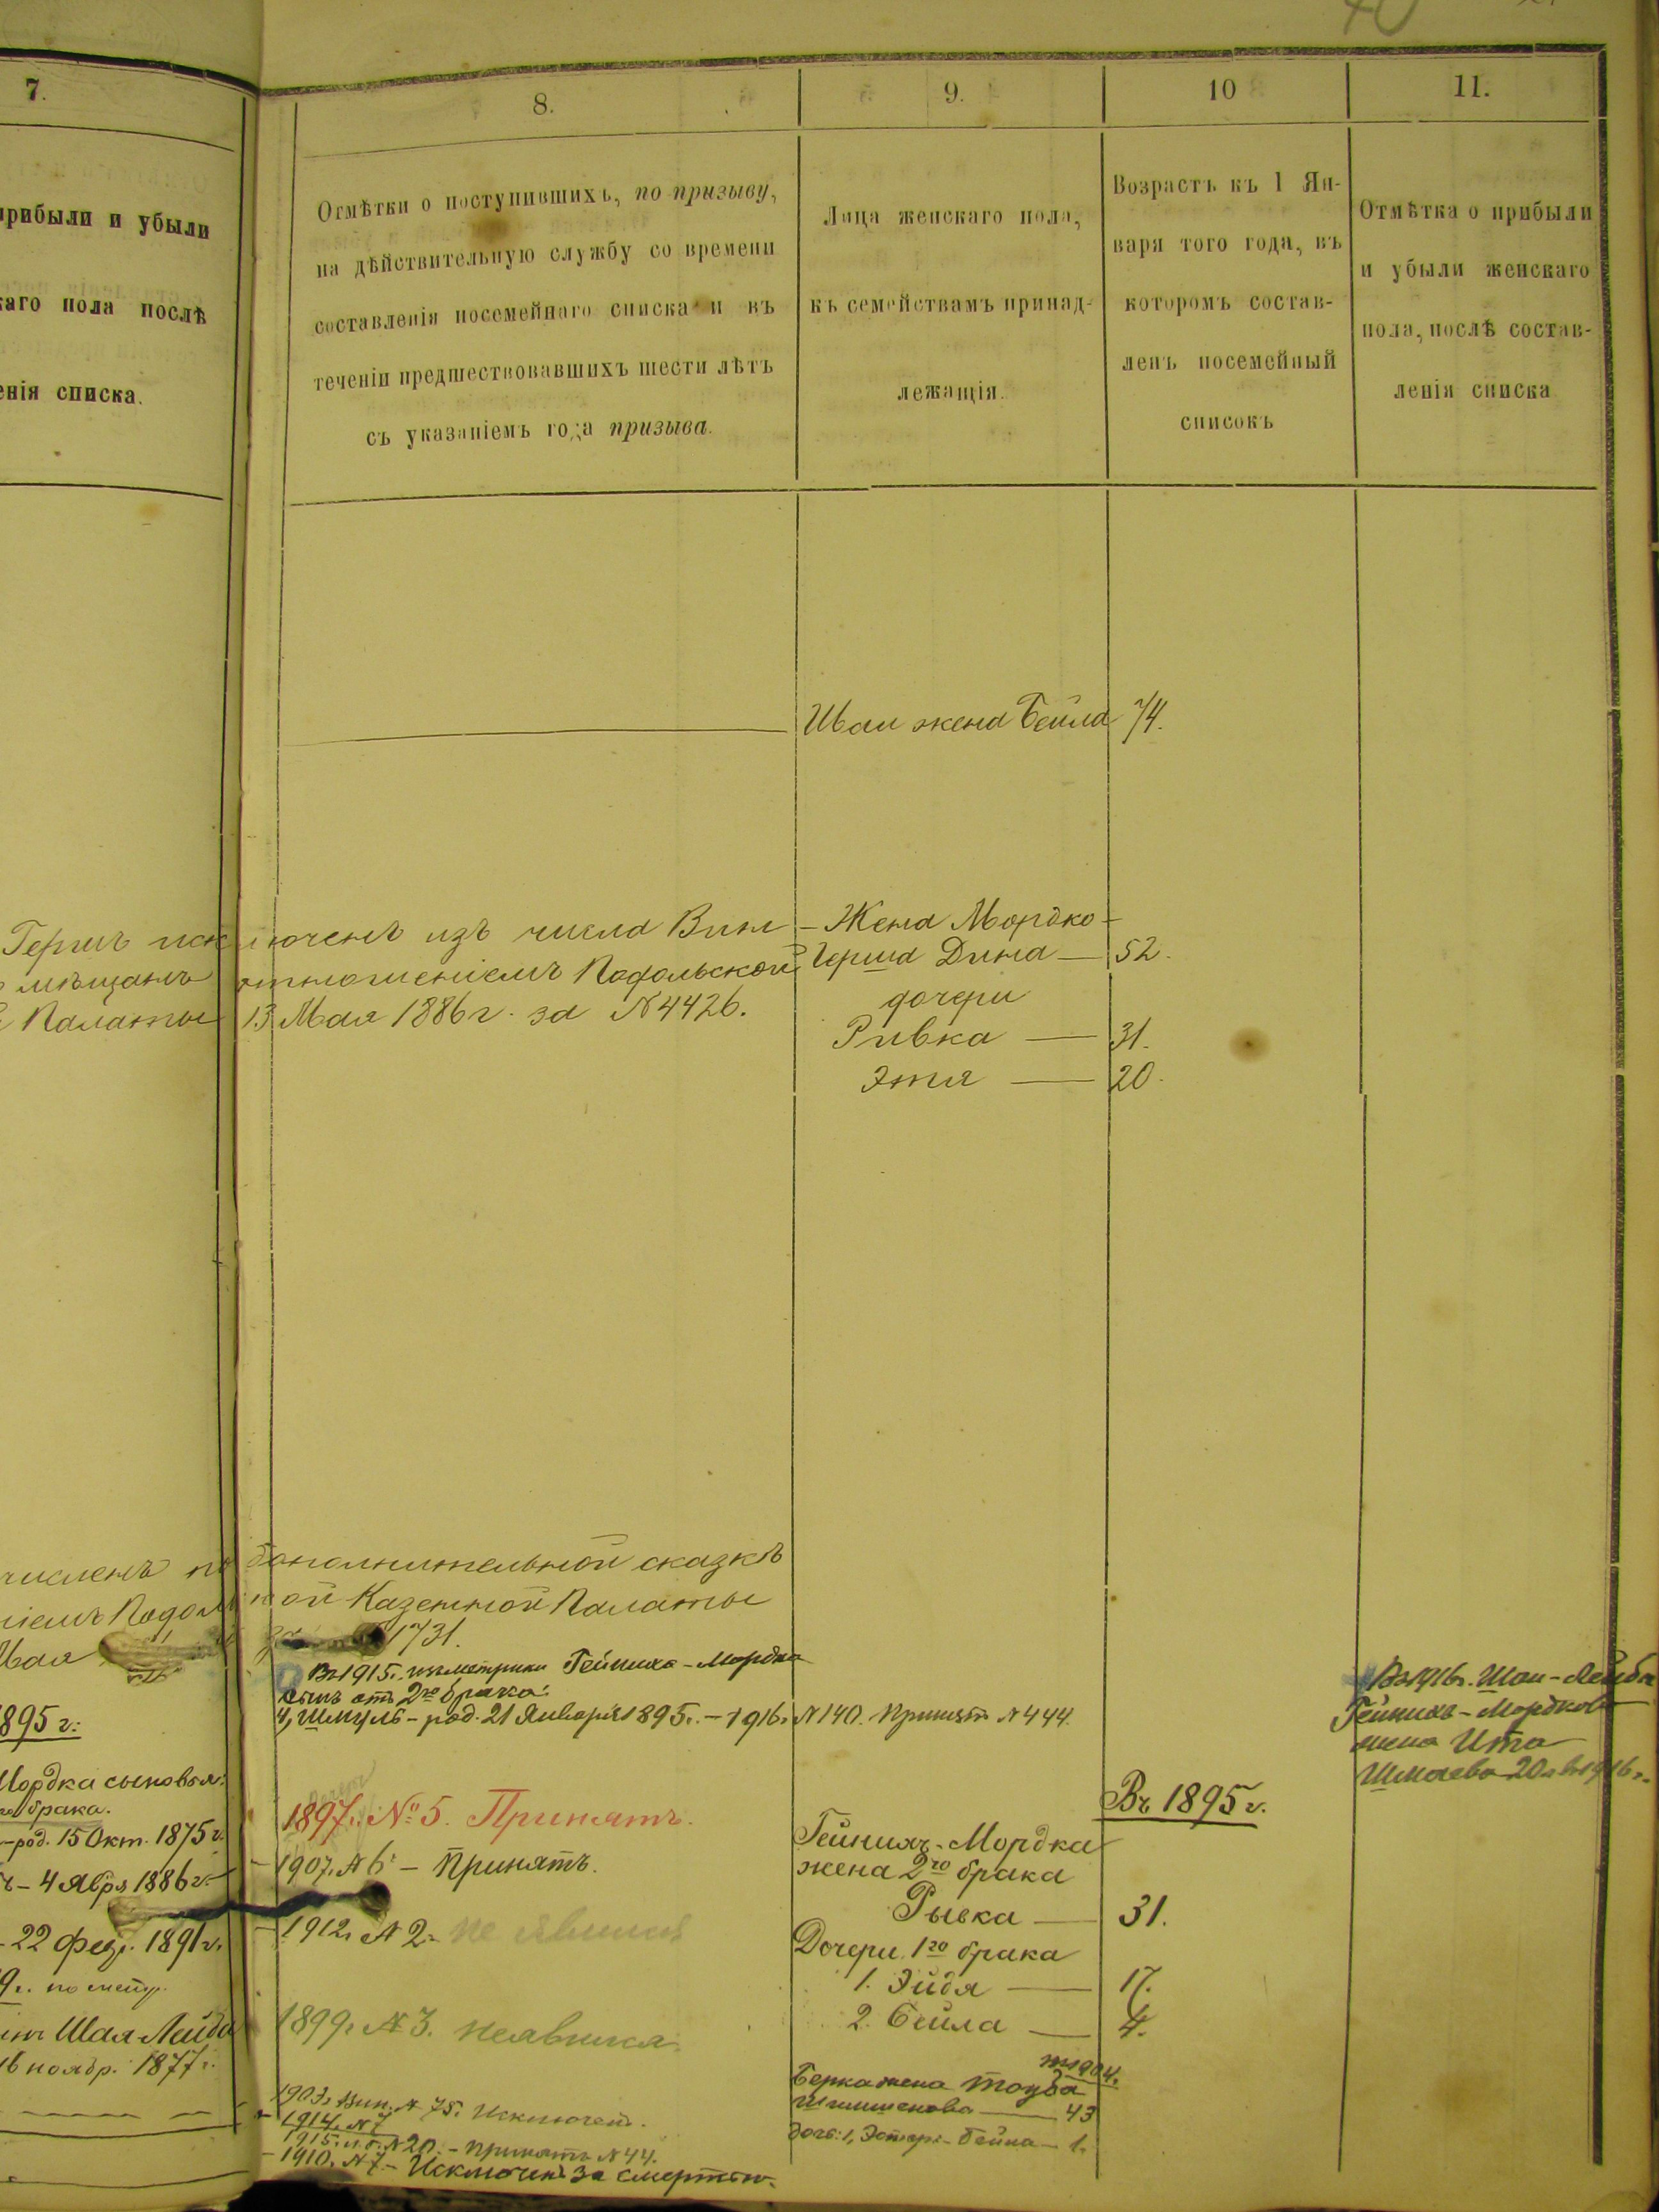 7.
прибыли и убыли
каго пола послѣ
енія списка.
8.
Отмѣтки о поступившихъ, по призыву,
на дѣйствительную службу со времени
составленія посемейнаго списка и въ
теченіи предшествовавшихъ шести лѣтъ
съ указаніемъ года призыва.
9.
Лица женскаго пола,
къ семействамъ принад-
лежащія.
10
Возрастъ къ 1 Ян-
варя того года, въ
которомъ состав-
ленъ посемейный
списокъ
11.
Отмѣтка о прибыли
и убыли женскаго
пола, послѣ состав-
ленія списка
жена Бейла 74.
Гершъ исключенъ изъ числа Вин
мѣщанъ отношеніемъ Подольской
Палаты 13 Мая 1886 г. за N 4426.
Жена Мордко-
Герша Дина — 52.
дочери
Ривка — 31.
Этя — 20.
численъ по дополнительной сказкѣ
ніемъ Подольской Казенной Палаты
Мая 1731.
Въ 1915 г. метрики Гейниха-Мордка
сынъ отъ 2го брака:
4, Шмуль - род. 21 Января 1895 г. - 1916 г. N 140. Принятъ N 444.
895 г:
Мордка сыновья:
брака.
-род. 15 Окт. 1875 г.
1897 г. № 5. Принятъ.
- 4 1886 г. - 1907 г. N 6 - Принятъ.
- 22 Фев. 1891 г. - 1912 г. N 2 - не явился
9 г. по метр.
Шая Лейба 1899 г. N 3. неявился.
16 ноябр. 1877 г.
1903 г. Вин. N 75. Исключен.
- 1914 г. N 7
1915 г. N 20. - принятъ N 44.
- 1910 г. N 7. - Исключенъ за смертью.
Въ 1895 г.
Гейнихъ-Мордка
жена 2го брака
Рывка — 31.
Дочери 1го брака
1. Эйдя — 17.
2. Бейла — 4.
1904 г.
Берка жена Тауба
— 43
дочь: 1, Эстер - Бейла - 1.
Въ 1916 г. Шаи-Лейба
Гейниха-Мордкова
жена Ита
Шмаева 20 л. въ 1916 г.